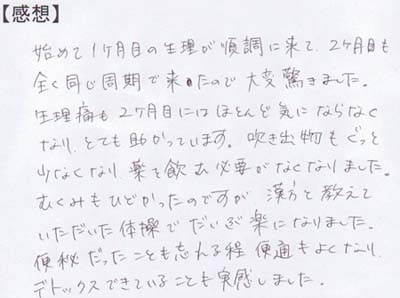 【感想】
始めて1ヶ月目の生理が順調に来て、2ヶ月目も
全く同じ周期で来たので大変驚きました。
生理痛も2ヶ月目にはほとんど気にならなく
なり、とても助かっています。吹き出物もぐっと
少なくなり、薬を飲む必要がなくなりました。
むくみもひどかったのですが、漢方と教えて
いただいた体操でだいぶ楽になりました。
便秘だったことも忘れる程 便通もよくなり、
デトックスできていることも実感しました。